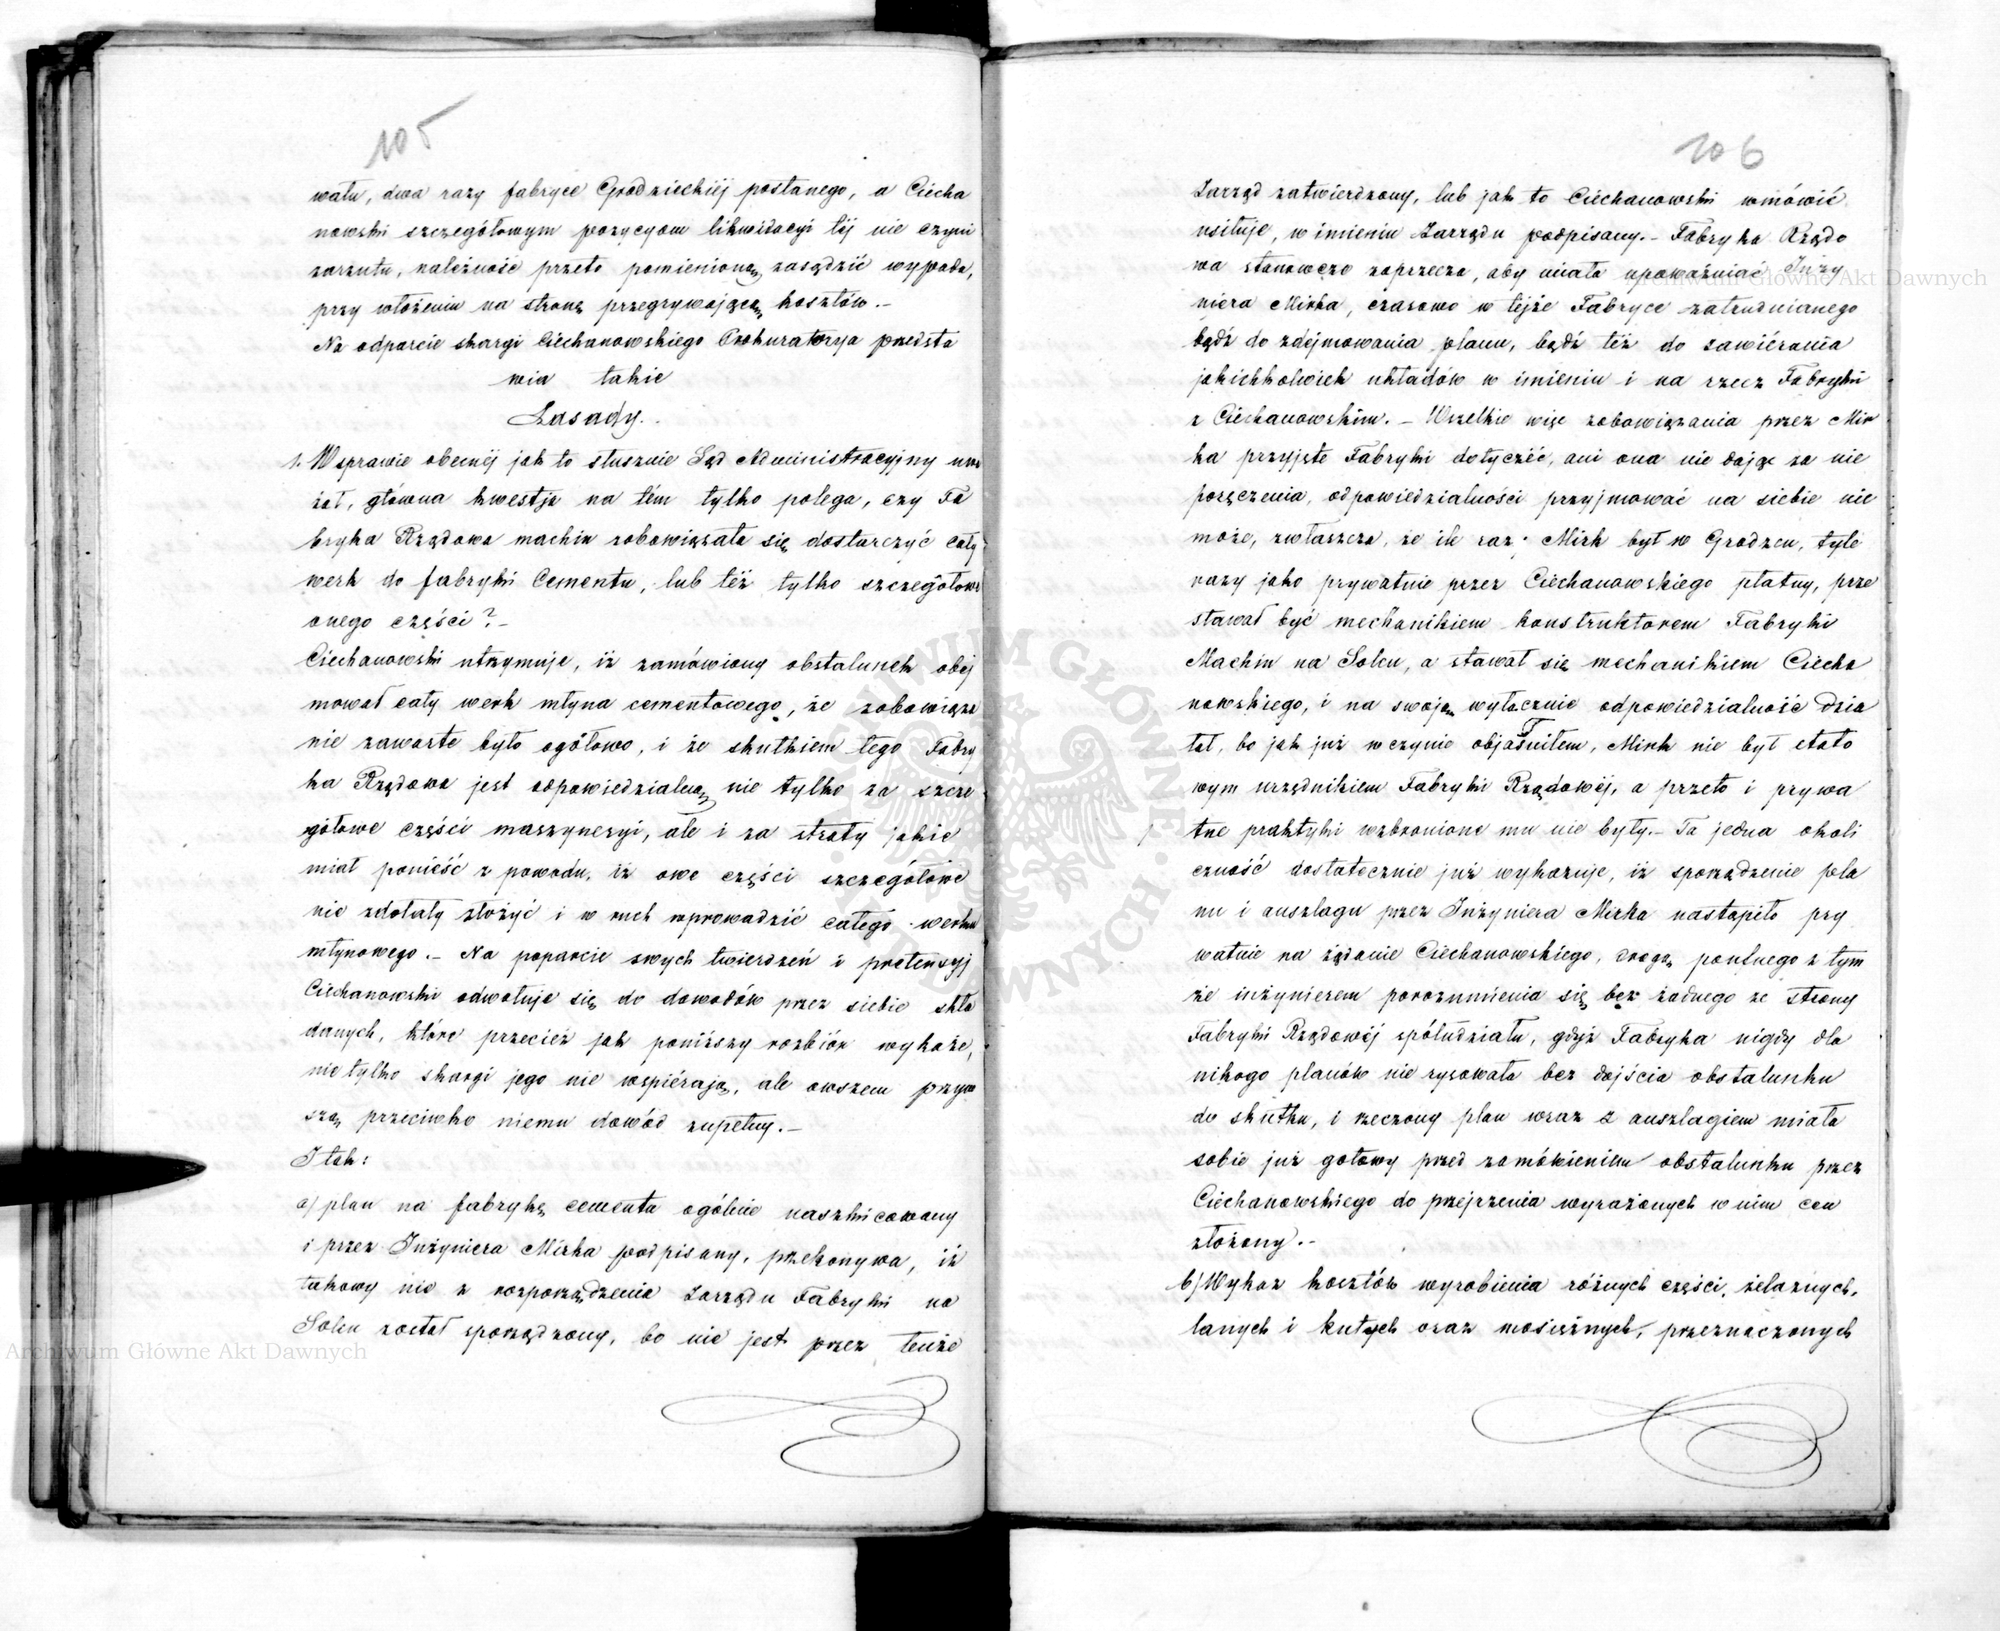 105
watu, dwa razy fabryce Grodzieckiéj posłanego, a Ciecha
nowski szczegółowym pozycyom likwidacyi téj nie czyni
zarzutu, należność przeto pomienioną zasądzić wypada,
przy włożeniu na stronę przegrywającą kosztów.–
Na odparcie skargi Ciechanowskiego Prokuratorya przedsta
wia takie
Zasady.
1. W sprawie obecnéj jak to słusznie Sąd Administracyjny uwa
żał, główna kwestja na tém tylko polega, czy Fa
bryka Rządowa machin zobowiązała się dostarczyć cały
werk do fabryki Cementu, lub téż tylko szczegółowe
onego części?–
Ciechanowski utrzymuje, iż zamówiony obstalunek obej
mował cały werk młyna cementowego, że zobowiąza
nie zawarte było ogółowo, i że skutkiem tego Fabry
ka Rządowa jest odpowiedzialną nie tylko za szcze
gółowe części maszyneryi, ale i za straty jakie
miał ponieść z powodu, iż owe części szczegółowe
nie zdołały złożyć i w ruch wprowadzić całego werku
młynowego.– Na poparcie swych twierdzeń i pretensyj
Ciechanowski odwołuje się do dowodów przez siebie skła
danych, które przecież jak poniższy rozbiór wykaże,
nie tylko skargi jego nie wspiérają, ale owszem przyno
szą przeciwko niemu dowód zupełny.–
I tak:
a) plan na fabrykę cementu ogólnie naszkicowany
i przez Inżyniera Mirka podpisany, przekonywa, iż
takowy nie z rozporządzenia Zarządu Fabryki na
Solcu został sporządzony, bo nie jest przez tenże
106
Zarząd zatwierdzony, lub jak to Ciechanowski wmówić
usiłuje, w imieniu Zarządu podpisany.– Fabryka Rządo
wa stanowczo zaprzecza, aby miała upoważniać Inży
niera Mirka, czasowo w tejże Fabryce zatrudnianego
bądź do zdejmowania planu, bądź téż do zawiérania
jakichkolwiek układów w imieniu i na rzecz Fabryki
z Ciechanowskim.– Wszelkie więc zobowiązania przez Mir
ka przyjęte Fabryki dotyczéć, ani ona nie dając za nie
poręczenia, odpowiedzialności przyjmować na siebie nie
może, zwłaszcza, że ile razy Mirk był w Grodzcu, tyle
razy jako prywatnie przez Ciechanowskiego płatny, prze
stawał być mechanikiem konstruktorem Fabryki
Machin na Solcu, a stawał się mechanikiem Ciecha
nowskiego, i na swoją wyłącznie odpowiedzialność dzia
łał, bo jak już w czynie objaśniłem, Mirk nie był etato
wym urzędnikiem Fabryki Rządowéj, a przeto i prywa
tne praktyki wzbronione mu nie były.– Ta jedna okoli
czność dostatecznie już wykazuje, iż sporządzenie pla
nu i auszlagu przez Inżyniera Mirka nastąpiło pry
watnie na żądanie Ciechanowskiego, drogą poufnego z tym
że inżynierem porozumienia się bez żadnego ze strony
Fabryki Rządowéj spółudziału, gdyż Fabryka nigdy dla
nikogo planów nie rysowała bez dojścia obstalunku
do skutku, i rzeczony plan wraz z auszlagiem miała
sobie już gotowy przed zamówieniem obstalunku przez
Ciechanowskiego do przejrzenia wyrażonych w nim cen
złożony.–
b) Wykaz kosztów wyrobienia różnych części, żelaznych,
lanych i kutych oraz mosiężnych, przeznaczonych
Archiwum Główne Akt Dawnych
Archiwum Główne Akt Dawnych
ARCHIWUM GŁÓWNE AKT DAWNYCH